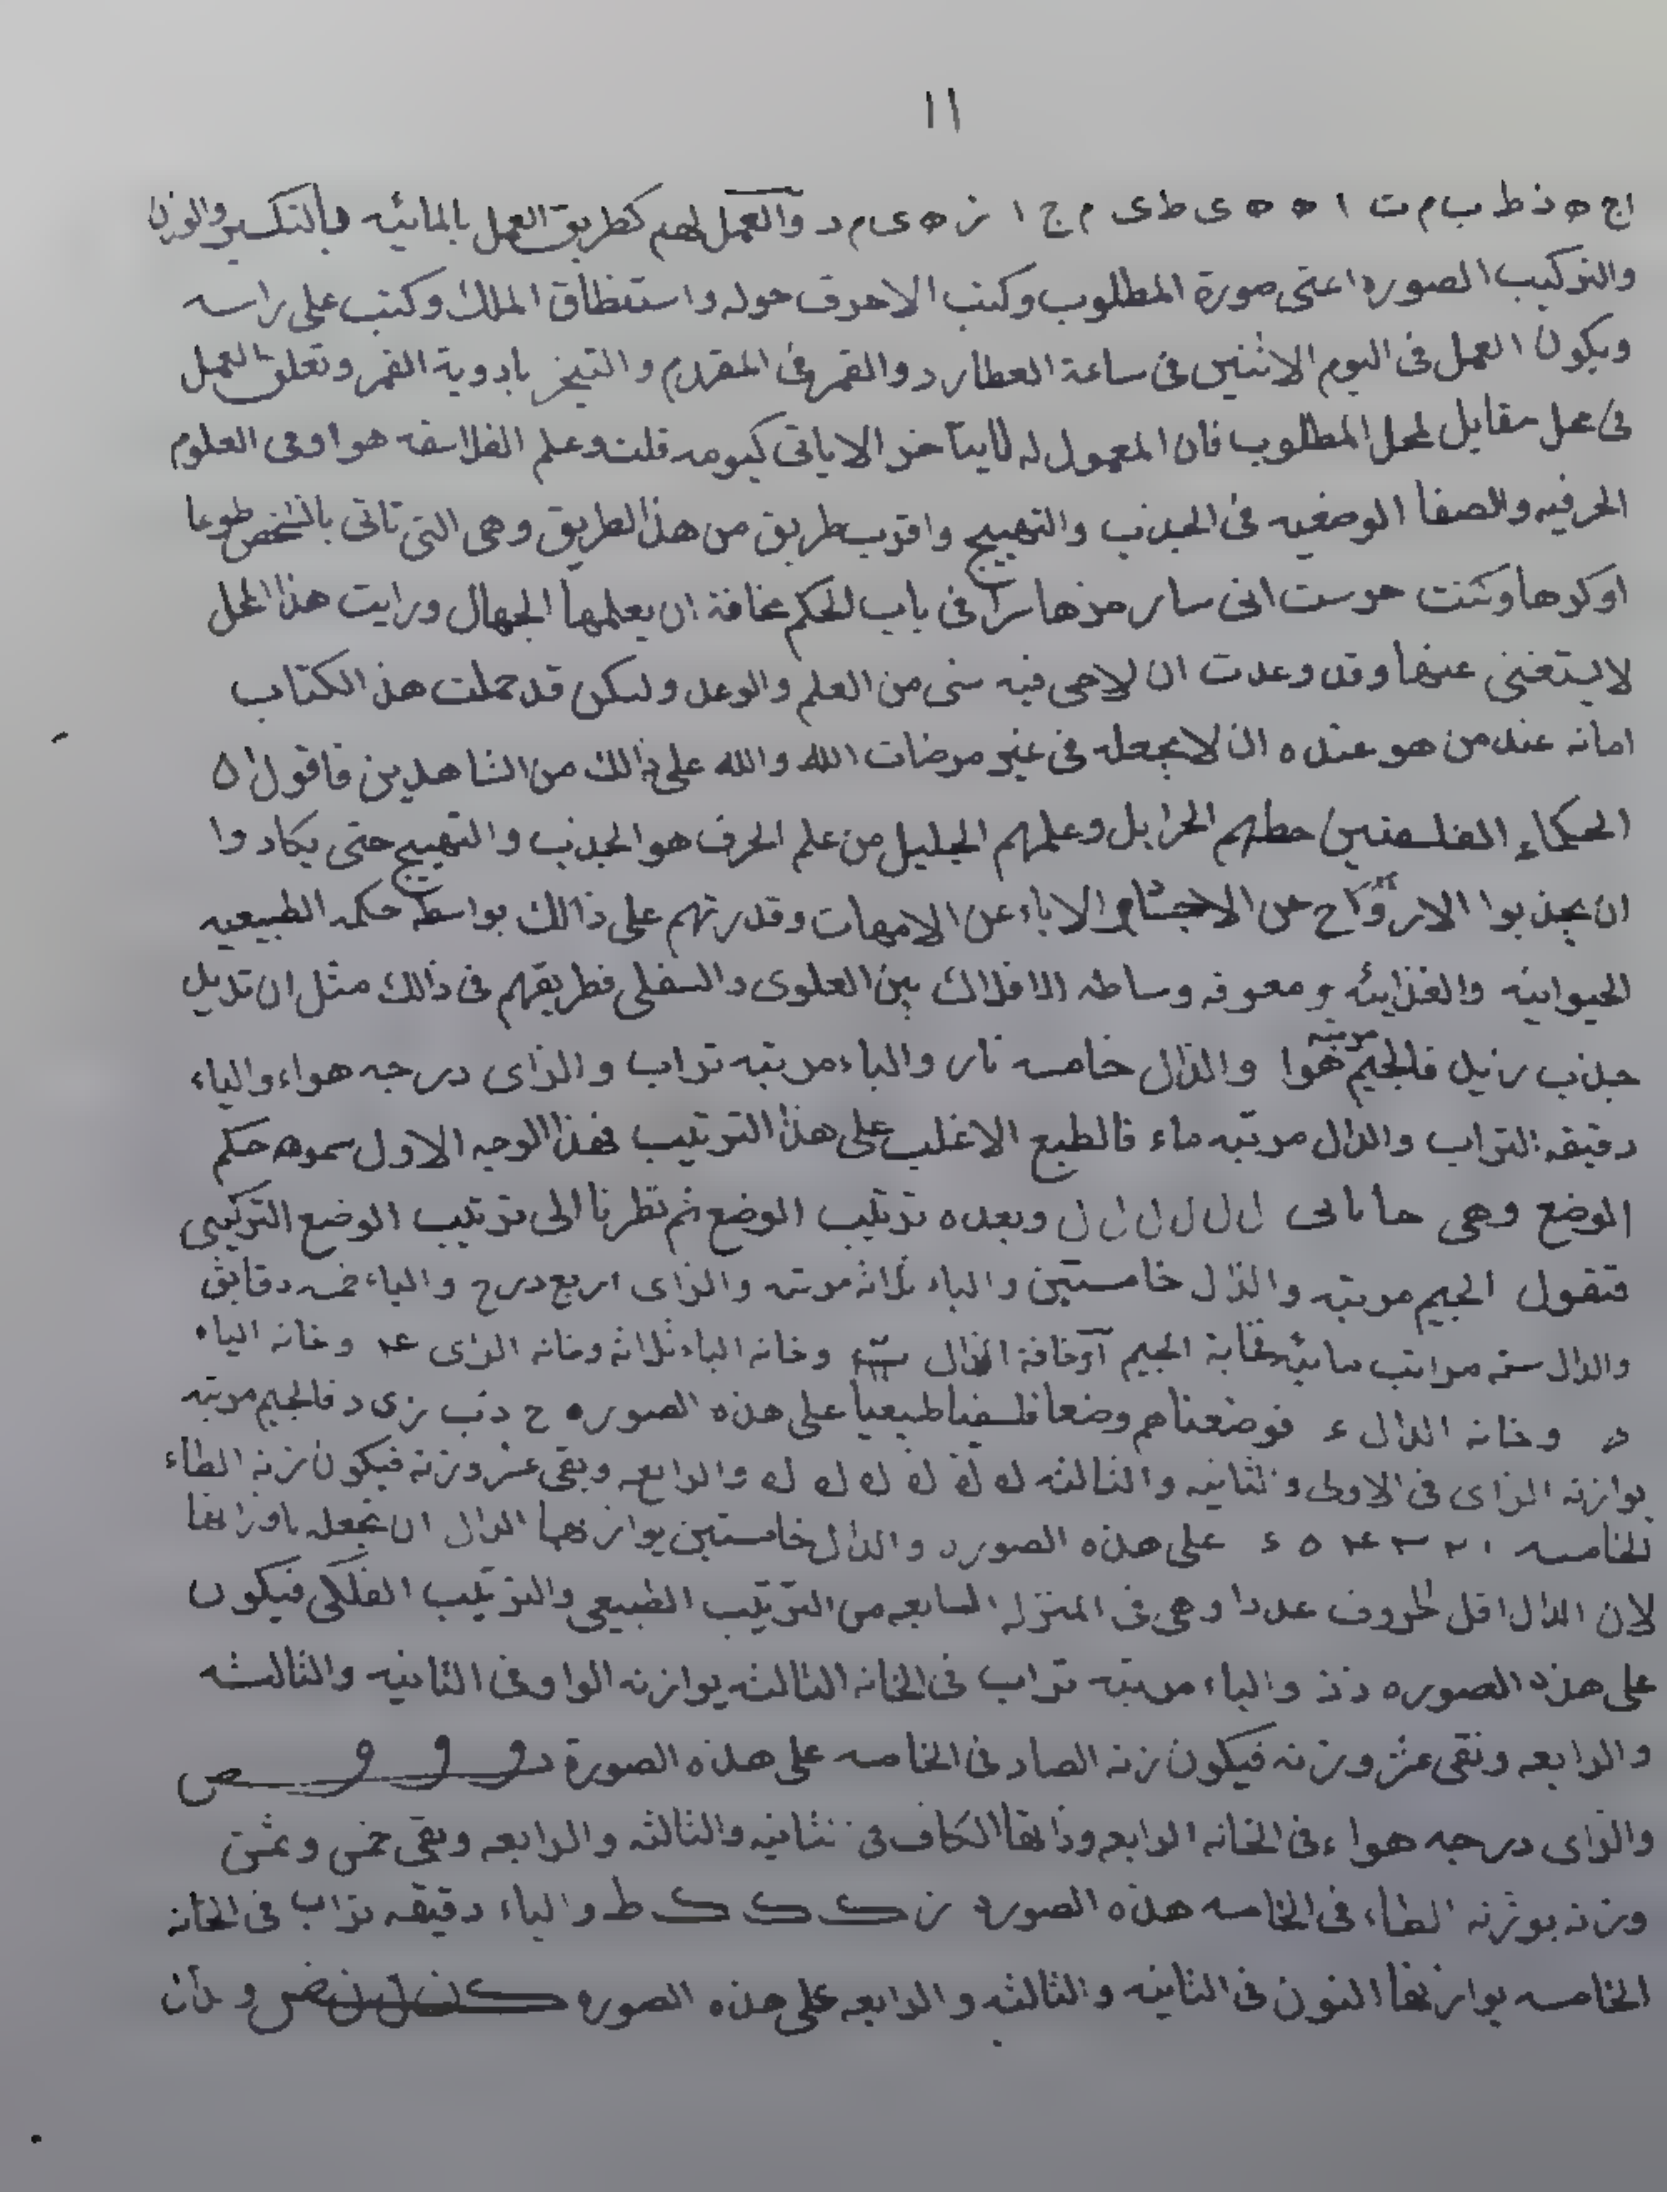 ١١
اج ه ذ ط ب م ت ا ه ه ى ط ى م ج ا ز ه ى م د والعمل لهم كطريق العمل بالمائيه بالتكسير والوزن
والتركيب الصوره اعنى صورة المطلوب وكتب الاحرف حوله واستنطاق الملك وكتب على راسه
ويكون العمل فى اليوم الاثنين فى ساعة العطارد والقمر فى المقدم و التبخر بادوية القمر وتعلق العمل
فى محل مقابل لمحل المطلوب فان المعمول له لايتأخر الا ياتى كيومه قلت وعلم الفلاسفه هو اوعى العلوم
الحرفيه والصفا الوضعيه فى الجذب والتهييج واقرب طريق من هذ الطريق وهى التى تاتى بالشخص طوعا
اوكرها وكنت حرست انى سارمزها سرا فى باب الحكم مخافة ان يعلمها الجهال ورايت هذا المحل
لايستغنى عنها وقد وعدت ان لاحى فيه شى من العلم والوعد ولكن قد حملت هذ الكتاب
امانه عند من هو عنده ان لا يجعله فى غير مرضات الله والله على ذالك من الشاهدين فاقول ان
الحكماء الفلسفيين حطهم الجزايل وعلمهم الجليل من علم الحرف هو الجذب والتهييج حتى يكادوا
ان يجذبوا الارواح عن الاجسام والاباء عن الامهات وقدرتهم على ذالك بواسطة حكمه الطبيعيه
الحيوانيه والغذائيه و معرفه وساطه الافلاك بين العلوى والسفلى فطريقهم فى ذالك مثل ان تديل
جذب زيد فالجيم مرتبه هوا والذال خامسه نار والباء مرتبه تراب والزاى درجه هواء والياء
دقيقه التراب والدال مرتبه ماء فالطبع الاغلب على هذا الترتيب فهذ الوجه الاول سموه حكم
الوضع وهى ل ل ل ل ل ل وبعده ترتيب الوضع ثم نظرنا الى ترتيب الوضع التركيبى
فتقول الجيم مرتبه والذال خامستين والباء ثلاث مرتبه والزاى اربع درج والياء خمسه دقايق
والدال سته مراتب مائيه الجيم الذال وخانه الباء ثلاثه وخانه الزاى ۴ وخانه الياء
۵ وخانه الدال ء فوضعناهم وضعا فلسفيا طبيعيا على هذه الصوره ج ذ ب ز ى د فالجيم مرتبه
يوازنه الزاى فى الاولى والثانيه والثالثه والرابعه وبقى عشر وزنه فيكون زنه الطاء
الخامسه ١ ٢ ٣ ۴ ۵ ء على هذه الصوره والذال خامستين يوازنهما الدال ان تجعله باوزانها
لان الدال اقل الحروف عددا وهى فى المنزله السابعه من الترتيب الطبيعى والترتيب الفلكى فيكون
على هذه الصوره ذ ذ والباء مرتبه تراب فى الخانه الثالثه يوازنه الواو فى الثانيه والثالثه
والرابعه وبقى عشر وزنه فيكون زنه الصاد فى الخامسه على هذه الصورة د و و و ص
والزاى درجه هواء فى الخانه الرابعه وزانها الكاف فى الثانيه والثالثه والرابعه وبقى خمس وعشر
وزنه يوزنه الطاء فى الخامسه هذه الصوره ز ك ك ك ط والياء دقيقه تراب فى الخانه
الخامسه يوازنها النون فى الثانيه والثالثه والرابعه على هذه الصوره